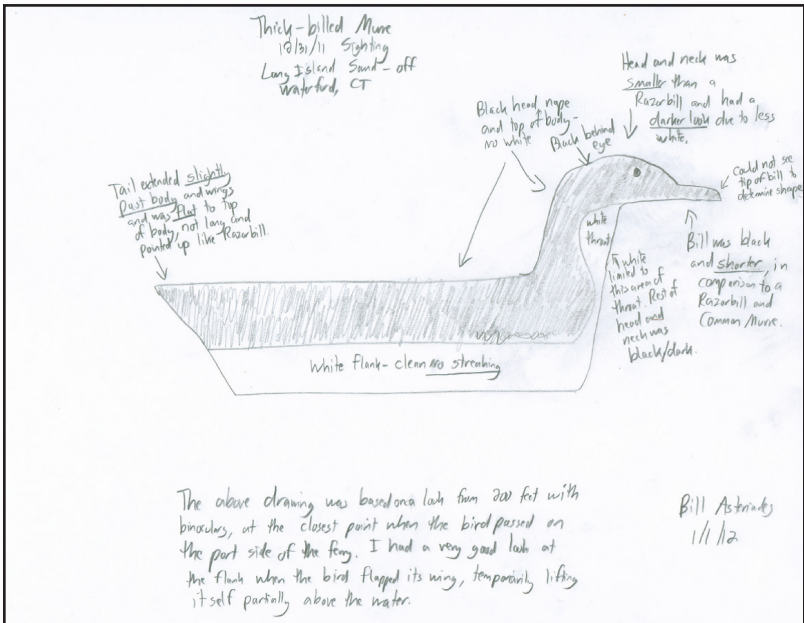 Thick-billed Murre
12/31/11 Sighting
Long Island Sound - off
Waterford, CT
Head and neck was
smaller than a
Razorbill and had a
darker look due to less
white.
Black head, nape
and top of body -
no white
Black behind
eye
Could not see
tip of bill to
determine shape
Tail extended slightly
past body and wings
and was flat to top
of body, not long and
pointed up like Razorbill.
white
throat
white
limited to
this area of
throat. Rest of
head and
neck was
black/dark.
Bill was black
and shorter, in
comparison to a
Razorbill and
Common Murre.
White flank - clean no streaking
The above drawing was based on a look from 200 feet with
binoculars, at the closest point when the bird passed on
the port side of the ferry. I had a very good look at
the flank when the bird flapped its wing, temporarily lifting
itself partially above the water.
Bill Asteriades
1/1/12